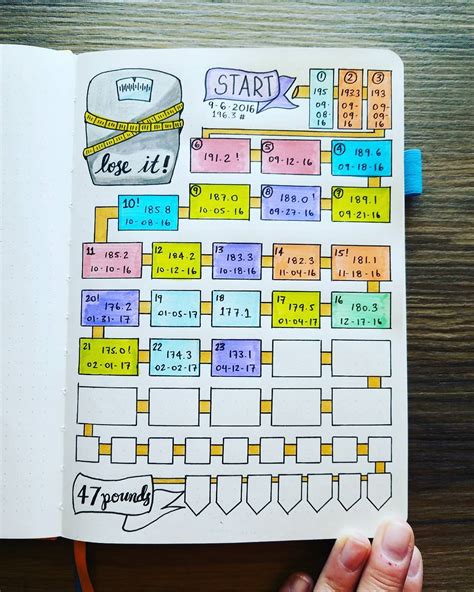 lose it!
START
9-6-2016
196.3 #
1
195
09-
08-
16
2
193.3
09-
09-
16
3
193
09-
09-
16
6
191.2!
5
09-12-16
4
189.6
09-18-16
10!
185.8
10-08-16
9
187.0
10-05-16
8
188.0!
09-27-16
7
189.1
09-21-16
11
185.2
10-10-16
12
184.2
10-12-16
13
183.3
10-18-16
14
182.3
11-4-16
15!
181.1
11-18-16
20!
176.2
01-31-17
19
01-05-17
18
177.1
17
179.5
01-04-17
16
180.3
12-17-16
21
175.0!
02-01-17
22
174.3
02-02-17
23
173.1
04-12-17
47 pounds